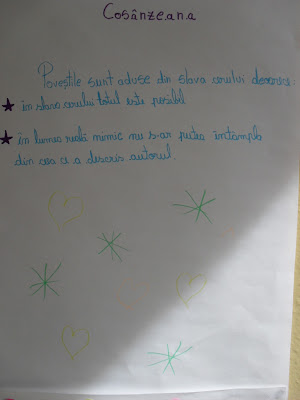 Cosânzeana
Poveștile sunt aduse din slava cerului deoarece:
în slava cerului totul este posibil
în lumea reală nimic nu s-ar putea întâmpla
din cea ce a descris autorul.